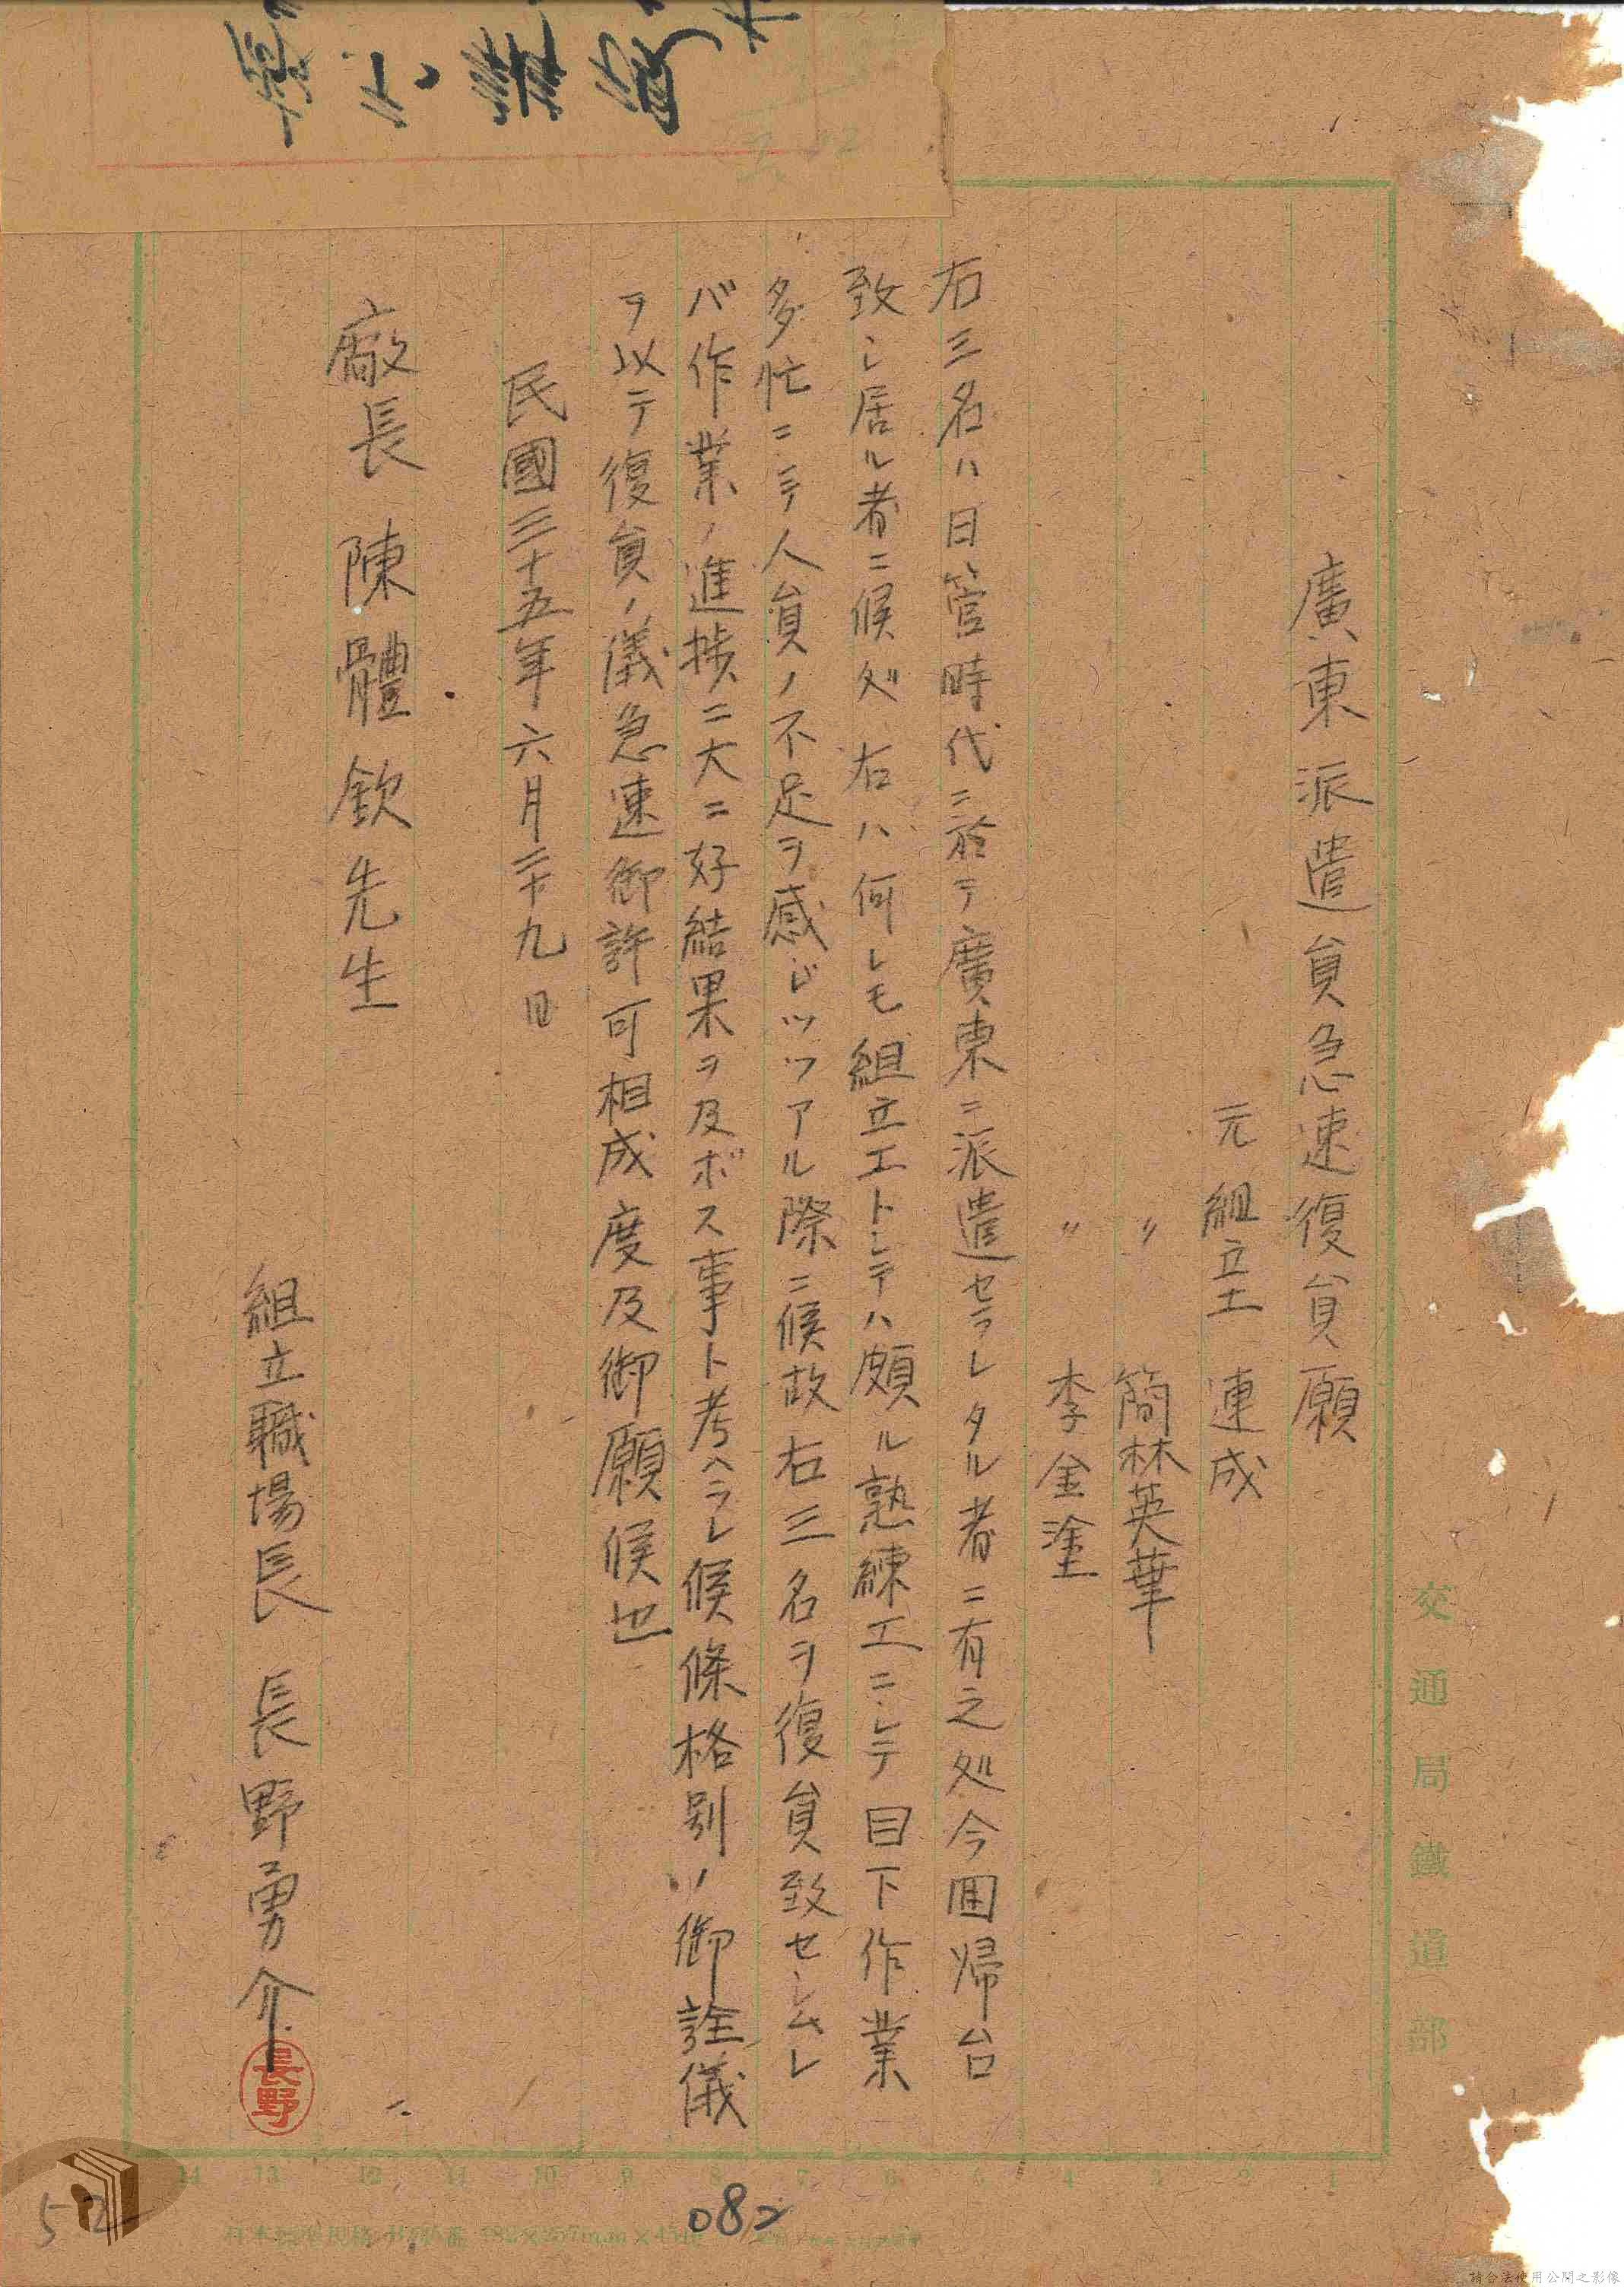 廣東派遣員急速復員願
元組立工 連成
〃 簡林英華
〃 李金塗
右三名ハ日管時代ニ於テ廣東ニ派遣セラレタル者ニ有之処今回帰台
致シ居ル者ニ候処右ハ何レモ組立工トシテハ頗ル熟練工ニシテ目下作業
多忙ニテ人員ノ不足ヲ感ジツツアル際ニ候故右三名ヲ復員致セシムレ
バ作業ノ進捗ニ大ニ好結果ヲ及ボス事ト考ヘラレ候條格別ノ御詮儀
ヲ以テ復員ノ儀急速御許可相成度及御願候也
民國三十五年六月二十九日
廠長 陳體欽先生
組立職場長 長野勇介
長野
交通局鐵道部
1 2 3 4 5 6 7 8 9 10 11 12 13 14
082
52
請合法使用公開之影像